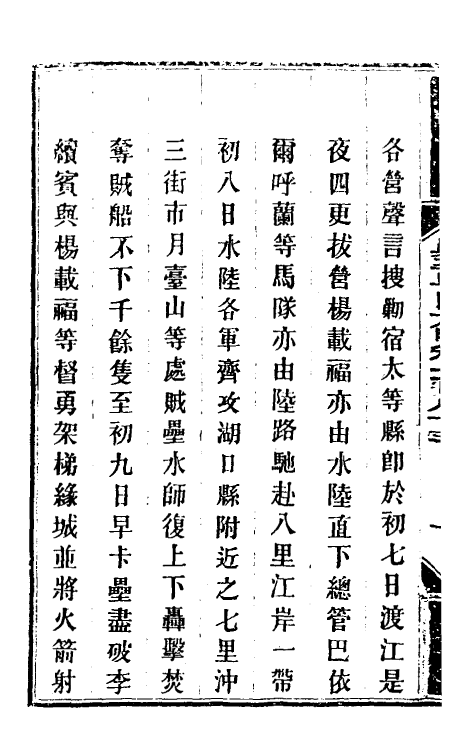 各營聲言搜勦宿太等縣卽於初七日渡江是
夜四更拔營楊載福亦由水陸直下總管巴依
爾呼蘭等馬隊亦由陸路馳赴八里江岸一帶
初八日水陸各軍齊攻湖口縣附近之七里沖
三街市月臺山等處賊壘水師復上下轟擊焚
奪賊船不下千餘隻至初九日早卡壘盡破李
續賓與楊載福等督勇架梯緣城並將火箭射